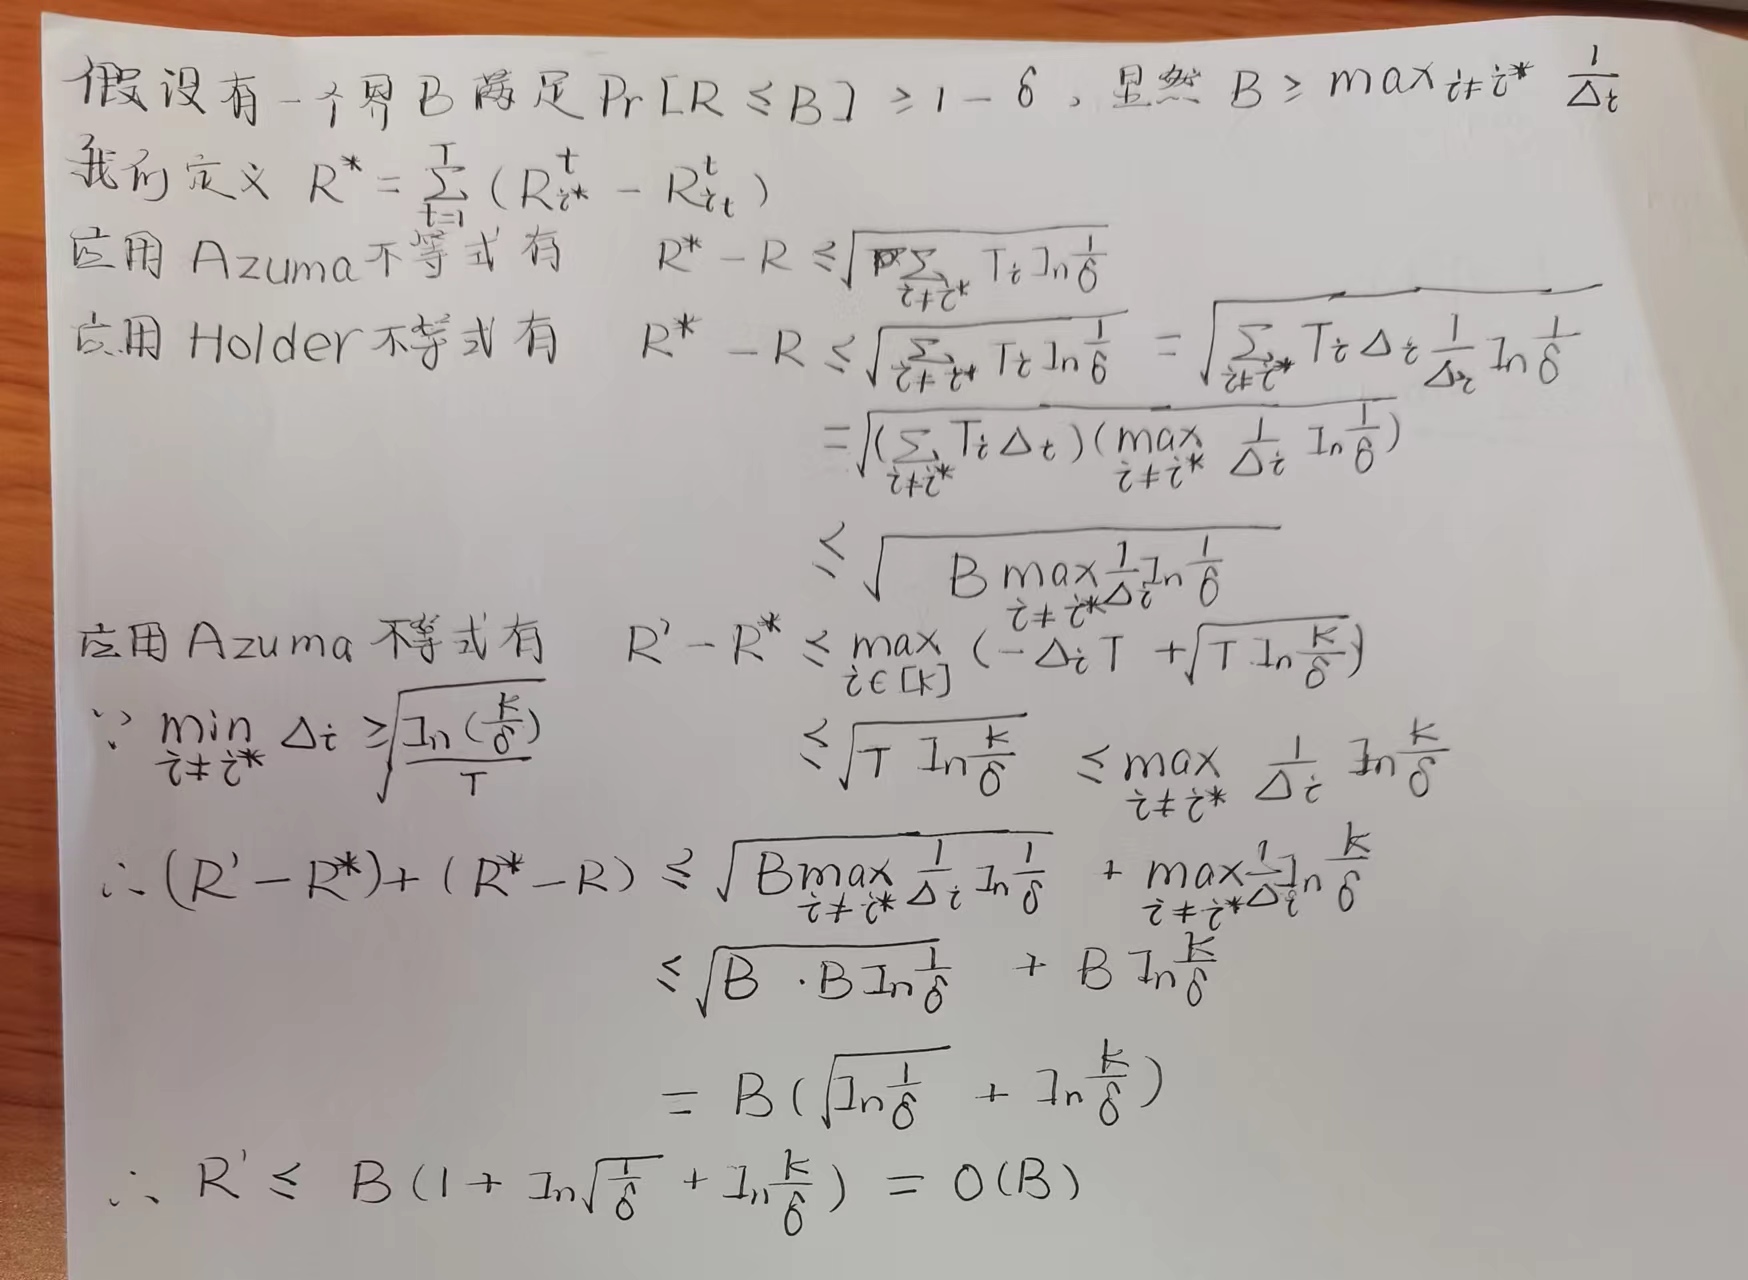 假设有一个界B满足 Pr[R ≤ B] ≥ 1 - δ, 显然 B ≥ max_{i≠i*} 1/Δ_i
我们定义 R* = Σ_{t=1}^{T} (R_{i*}^t - R_{i_t}^t)
应用 Azuma 不等式有 R* - R ≤ √(Σ_{i≠i*} T_i ln 1/δ)
应用 Holder 不等式有 R* - R ≤ √(Σ_{i≠i*} T_i ln 1/δ) = √(Σ_{i≠i*} T_i Δ_i 1/Δ_i ln 1/δ)
= √((Σ_{i≠i*} T_i Δ_i)(max_{i≠i*} 1/Δ_i ln 1/δ))
≤ √(B max_{i≠i*} 1/Δ_i ln 1/δ)
应用 Azuma 不等式有 R' - R* ≤ max_{i∈[K]} (-Δ_i T + √(T ln K/δ))
∵ min_{i≠i*} Δ_i ≥ √(ln(K/δ)/T) ≤ √(T ln K/δ) ≤ max_{i≠i*} 1/Δ_i ln K/δ
∴ (R' - R*) + (R* - R) ≤ √(B max_{i≠i*} 1/Δ_i ln 1/δ) + max_{i≠i*} 1/Δ_i ln K/δ
≤ √(B · B ln 1/δ) + B ln K/δ
= B(√(ln 1/δ) + ln K/δ)
∴ R' ≤ B(1 + ln√(1/δ) + ln K/δ) = O(B)